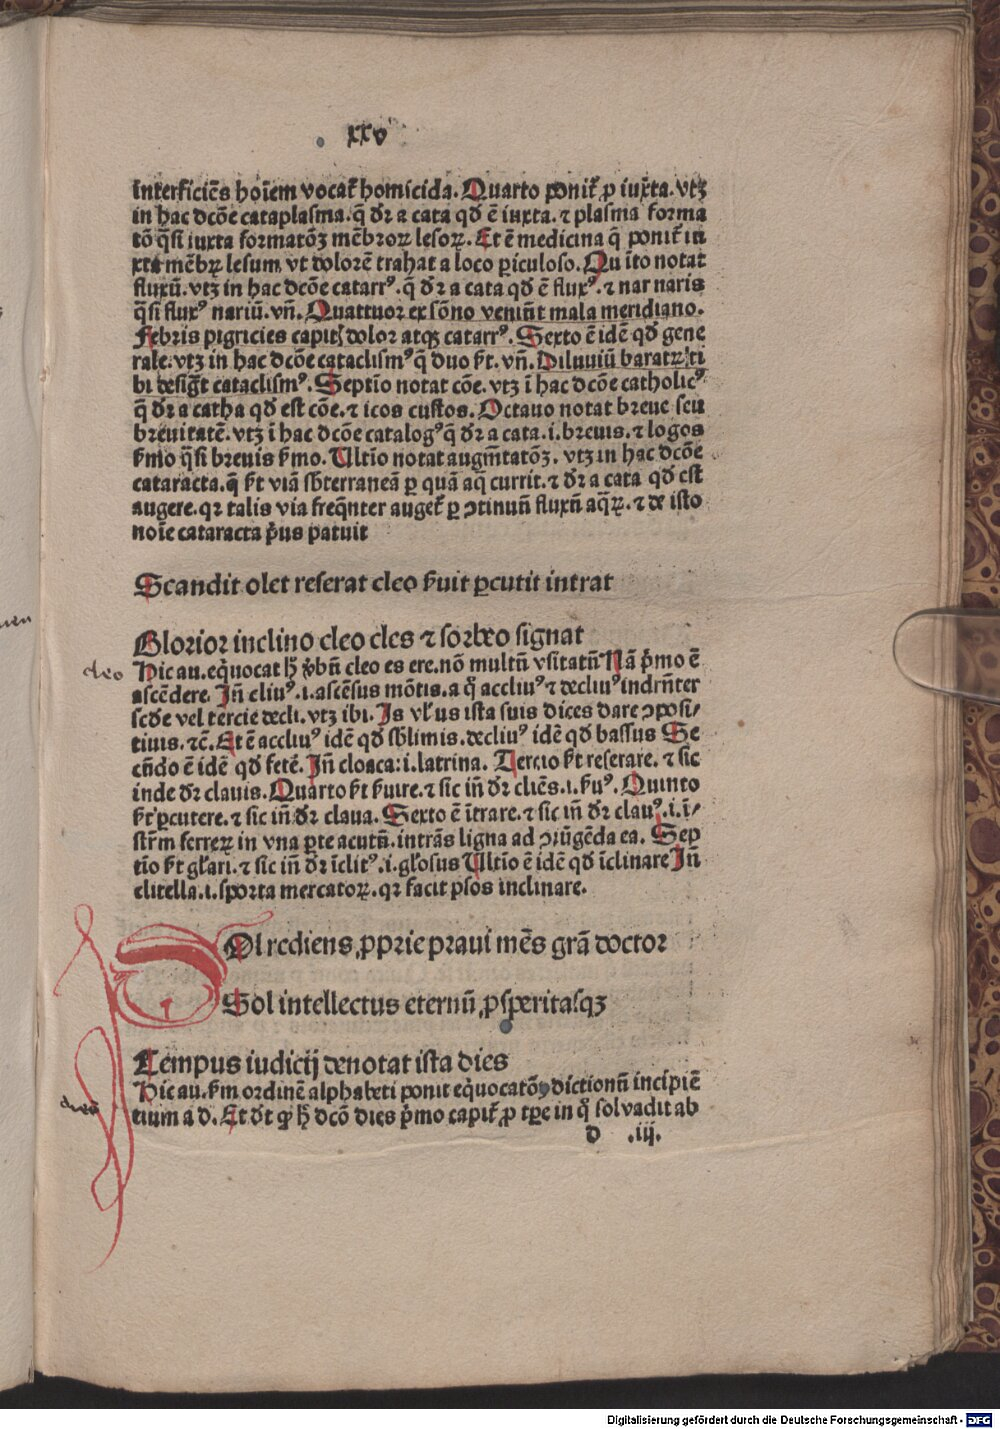 xxv
interficiēs hoīem vocat᷑ homicida. Quarto ponit᷑ ꝓ iuxta. vtꝫ
in hac dcōe cataplasma. q̄ dr̄ a cata qd̄ ē iuxta. ⁊ plasma forma
tō q̄si iuxta formatōꝫ mēbroꝝ lesoꝝ. Et ē medicina q̄ ponit᷑ in
xta mēbꝝ lesum vt dolorē trahat a loco ꝑiculoso. Quīto notat
fluxū. vtꝫ in hac dcōe catarrꝰ. q̄ dr̄ a cata qd̄ ē fluxꝰ. ⁊ nar naris
q̄si fluxꝰ nariū. vn̄. Quattuor ex sōno veniūt mala meridiano.
Febris pigricies capitꝭ dolor atqꝫ catarrꝰ. Sexto ē idē qd̄ gene
rale. vtꝫ in hac dcōe cataclismꝰ q̄ duo st᷑. vn̄. Diluuiū baratꝝ ti
bi desig᷑t cataclismꝰ. Septīo notat cōe. vtꝫ ī hac dcōe catholicꝰ
q̄ dr̄ a catha qd̄ est cōe. ⁊ icos custos. Octauo notat breue seu
breuitatē. vtꝫ ī hac dcōe catalogꝰ q̄ dr̄ a cata .i. breuis. ⁊ logos
s̄mo q̄si breuis s̄mo. Vltīo notat augm̄tatōꝫ. vtꝫ in hac dcōe
cataracta. q̄ st᷑ viā sb̄terraneā ꝑ quā aq̄ currit. ⁊ dr̄ a cata qd̄ est
augere. qꝛ talis via freq̄nter auget᷑ ꝑ ꝯtinuū fluxū aq̄ꝝ. ⁊ de isto
noīe cataracta p̄us patuit
Scandit olet reserat cleo s̄uit ꝑcutit intrat
Glorior inclino cleo cles ⁊ sorbeo signat
cleo
Hic au. eq̄uocat hꝭ v̄bū cleo es ere. nō multū vsitatū Nā p̄mo ē
ascēdere. Iñ cliuꝰ .i. ascēsus mōtis. a qͦ accliuꝰ ⁊ decliuꝰ indrn̄ter
scd̄e vel tercie decli. vtꝫ ibi. Is vl̓ us ista suis dices dare ꝯposi/
tiuis. ⁊c̄. Et ē accliuꝰ idē qd̄ sb̄limis. decliuꝰ idē qd̄ bassus Se
cūdo ē idē qd̄ fetē. Iñ cloaca: i. latrina. Tercio st᷑ reserare. ⁊ sic
inde dr̄ clauis. Quarto st᷑ s̄uire. ⁊ sic iñ dr̄ cliēs .i. s̄uꝰ. Quinto
st᷑ ꝑcutere. ⁊ sic iñ dr̄ claua. Sexto ē ītrare. ⁊ sic iñ dr̄ clauꝰ .i. ī/
str̄m ferreꝝ in vna ꝑte acutū. intrās ligna ad ꝯiūgēda ea. Sep
tīo st᷑ gl̓ari. ⁊ sic iñ dr̄ īclitꝰ .i. gl̓osus Vltīo ē idē qd̄ īclinare Iñ
clitella .i. sporta mercatoꝝ. qꝛ facit ꝑsos inclinare.
Dol rediens, ꝓprie praui mēs grā doctor
Sol intellectus eternū, ꝓsperitasqꝫ
Tempus iudicij denotat ista dies
Hic au. s̄m ordinē alphabeti ponit eq̄uocatōꝫ dictionū incipiē
tium a d. Et d̓t ꝙ hꝭ dcō dies p̄mo capit᷑ ꝓ tꝑe in qͦ sol vadit ab
d .iij.
Digitalisierung gefördert durch die Deutsche Forschungsgemeinschaft - DFG